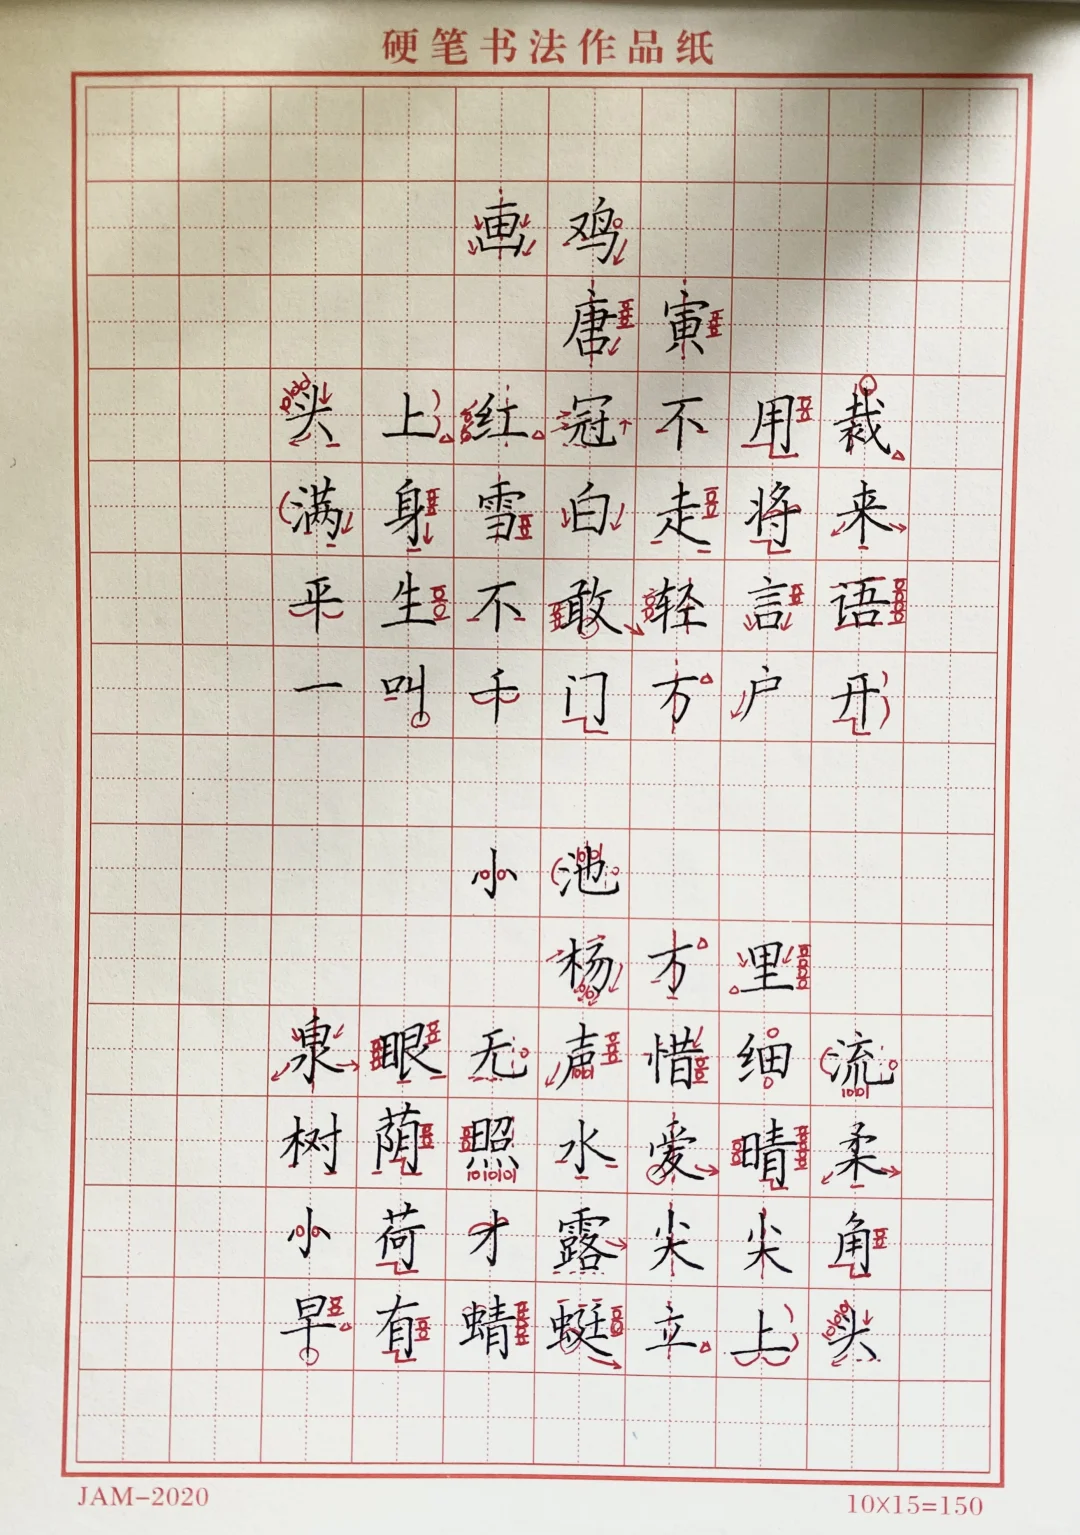 硬笔书法作品纸
画鸡
唐寅
头上红冠不用裁
满身雪白走将来
平生不敢轻言语
一叫千门万户开
小池
杨万里
泉眼无声惜细流
树荫照水爱晴柔
小荷才露尖尖角
早有蜻蜓立上头
JAM-2020
10×15=150